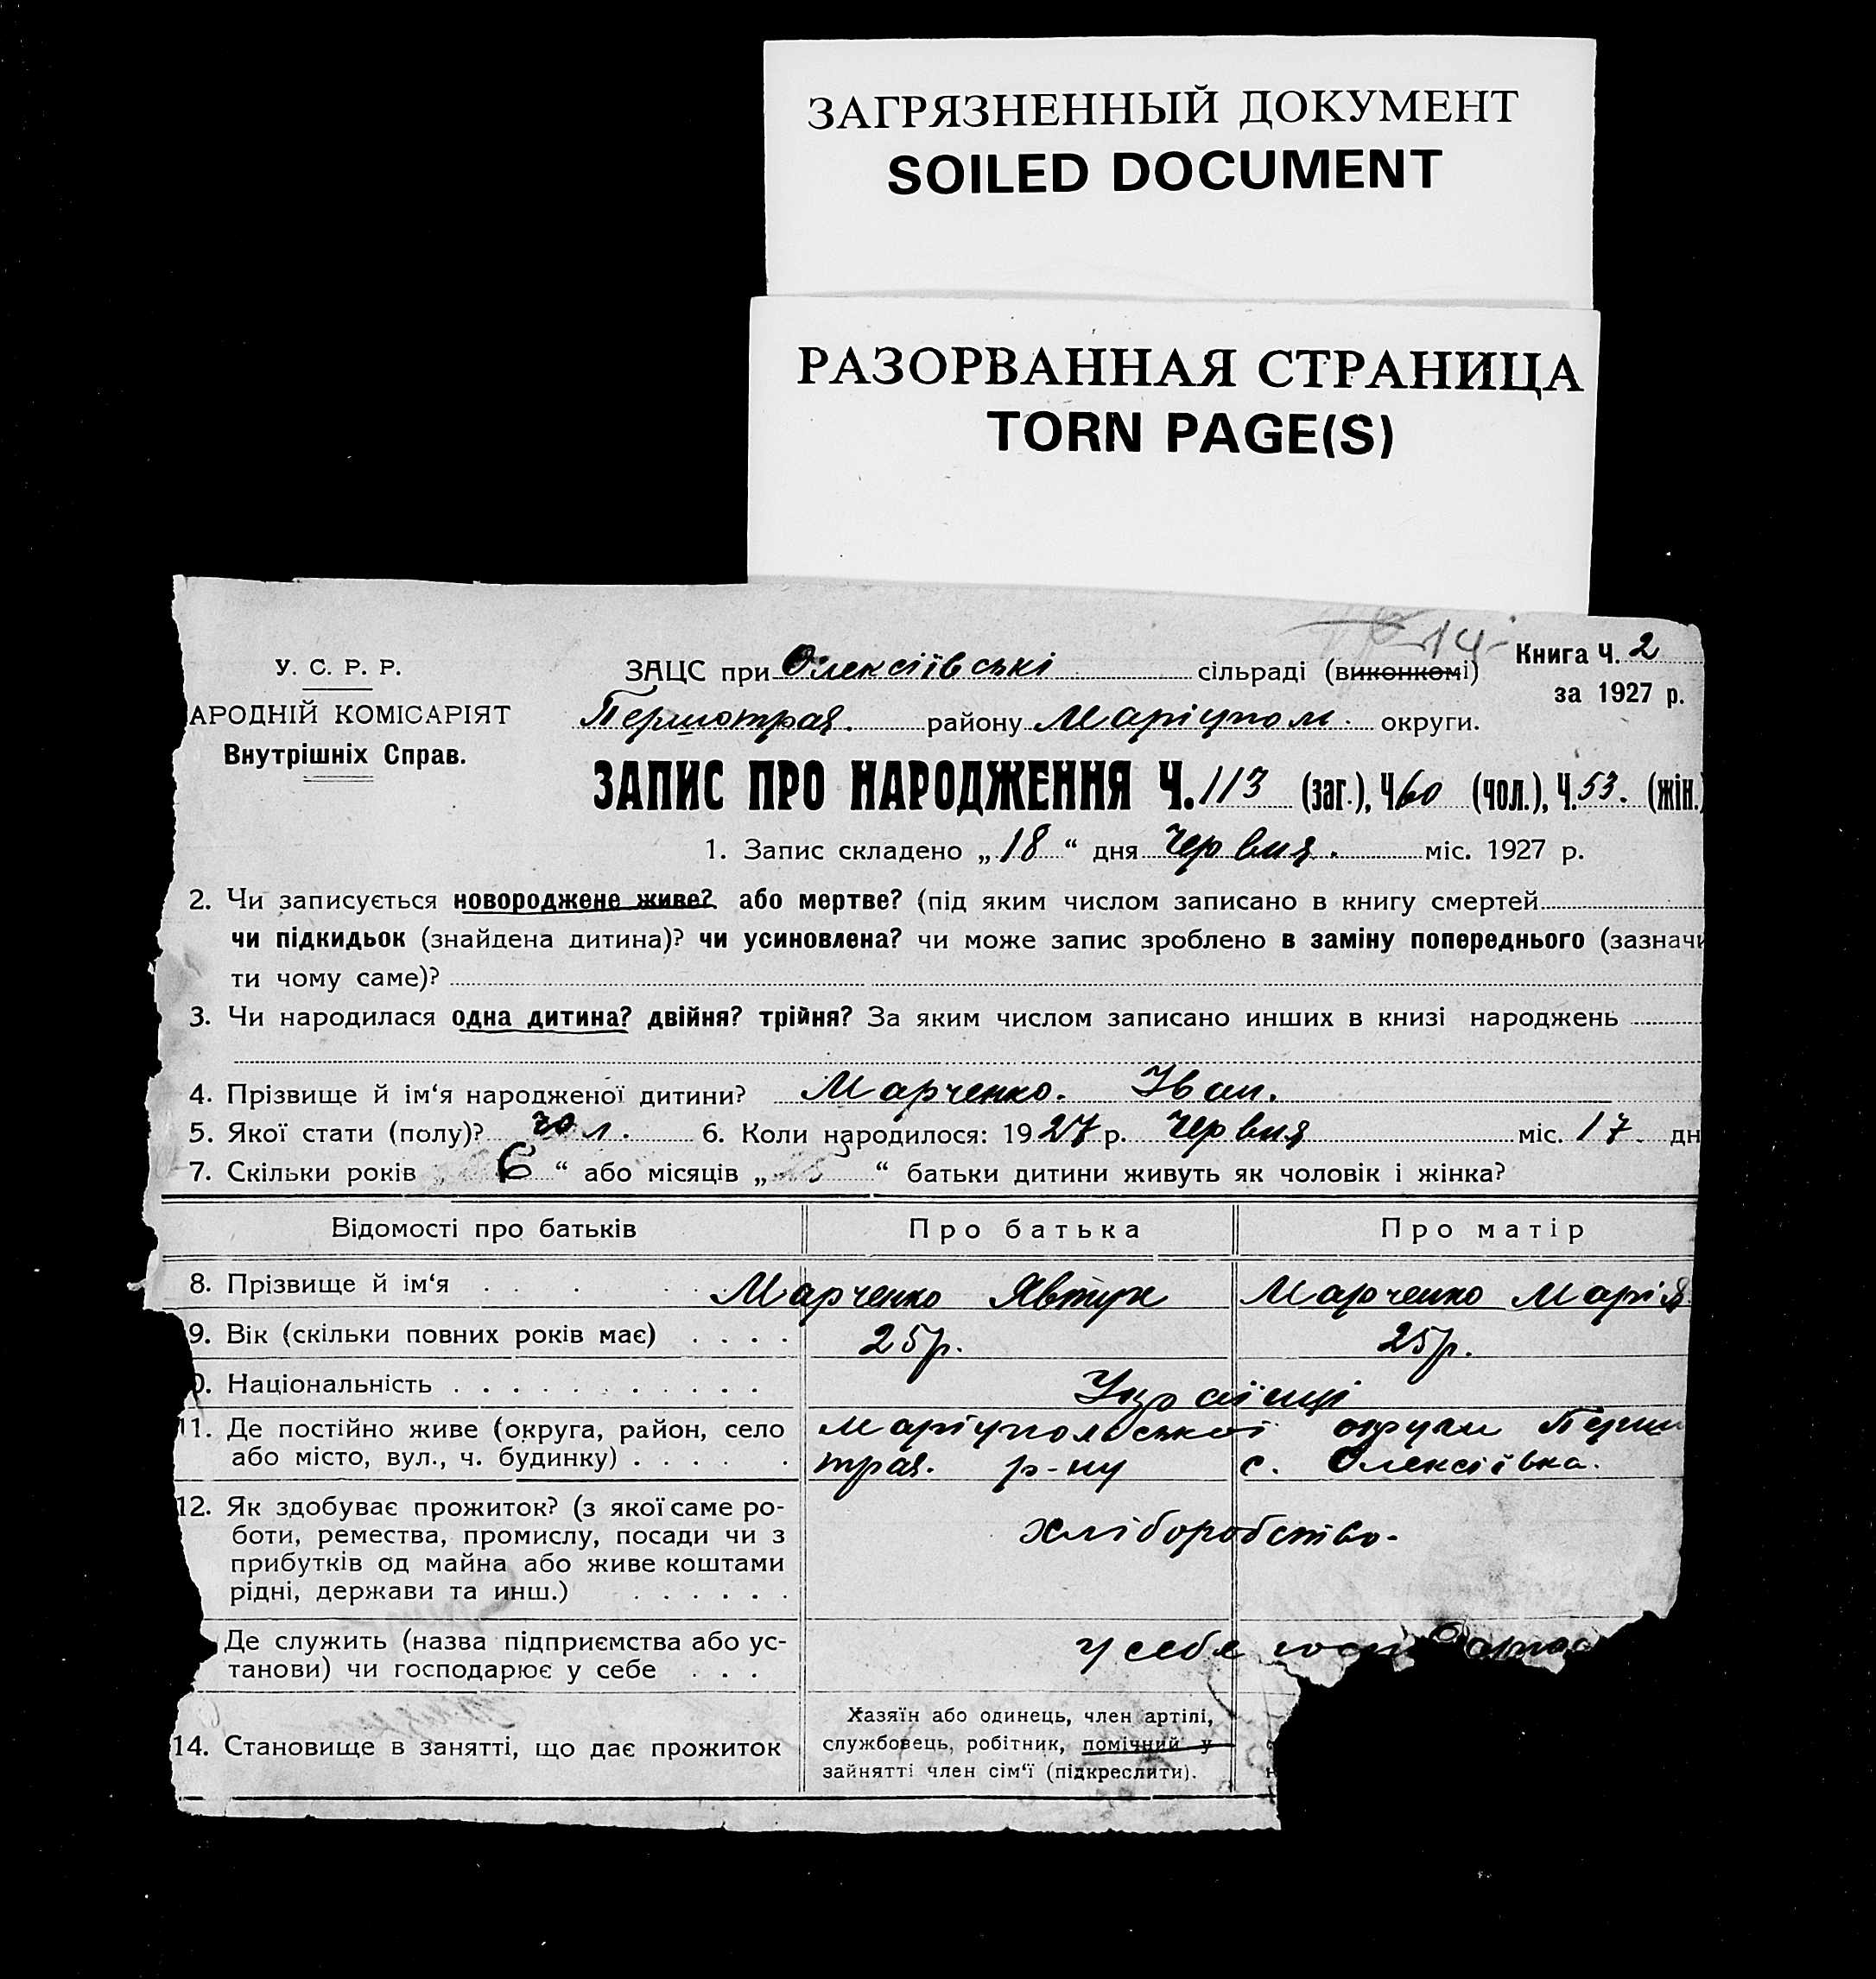 ЗАГРЯЗНЕННЫЙ ДОКУМЕНТ
SOILED DOCUMENT
РАЗОРВАННАЯ СТРАНИЦА
TORN PAGE(S)
14
У. С. Р. Р.
ЗАЦС при Олексіївські сільраді (виконкомі)
Книга Ч. 2
за 1927 р.
АРОДНІЙ КОМІСАРІЯТ
Першотрав. району Маріупол. округи.
Внутрішніх Справ.
ЗАПИС ПРО НАРОДЖЕННЯ Ч. 113 (заг.), Ч 60 (чол.), Ч. 53. (жін.)
1. Запис складено „18“ дня Червня. міс. 1927 р.
2. Чи записується новороджене живе? або мертве? (під яким числом записано в книгу смертей
чи підкидьок (знайдена дитина)? чи усиновлена? чи може запис зроблено в заміну попереднього (зазначи
ти чому саме)?
3. Чи народилася одна дитина? двійня? трійня? За яким числом записано инших в книзі народжень
4. Прізвище й ім‘я народженої дитини? Марченко. Іван.
5. Якої стати (полу)? чол. 6. Коли народилося: 1927 р. Червня міс. 17 дн
7. Скільки років „ 6 “ або місяців „ “ батьки дитини живуть як чоловік і жінка?
Відомості про батьків Про батька Про матір
8. Прізвище й ім‘я . . . . Марченко Явтух Марченко Марія
9. Вік (скільки повних років має) . . . . 25р. 25р.
0. Національність . . . . . . . . . . . Українці
11. Де постійно живе (округа, район, село Маріупольської округи Перш
або місто, вул., ч. будинку) . . . . . трав. р-ну с. Олексіївка.
12. Як здобуває прожиток? (з якої саме ро-
боти, ремества, промислу, посади чи з
прибутків од майна або живе коштами
рідні, держави та инш.) . . . . . .
хліборобство.
Де служить (назва підприємства або ус-
танови) чи господарює у себе . . .
у себе
14. Становище в занятті, що дає прожиток
Хазяїн або одинець, член артілі,
службовець, робітник, помічний у
зайнятті член сім‘ї (підкреслити).